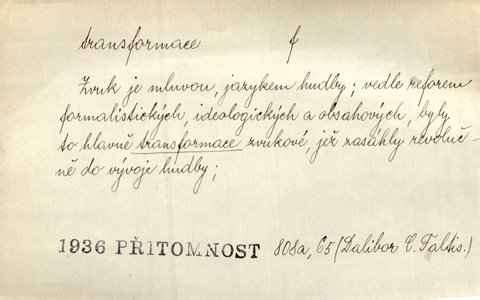 transformace f
Zvuk je mluvou, jazykem hudby; vedle reforem
formalistických, ideologických a obsahových, byly
to hlavně transformace zvukové, jež zasáhly revoluč-
ně do vývoje hudby;
1936 PŘÍTOMNOST 808a, 65 (Dalibor C. Faltis.)